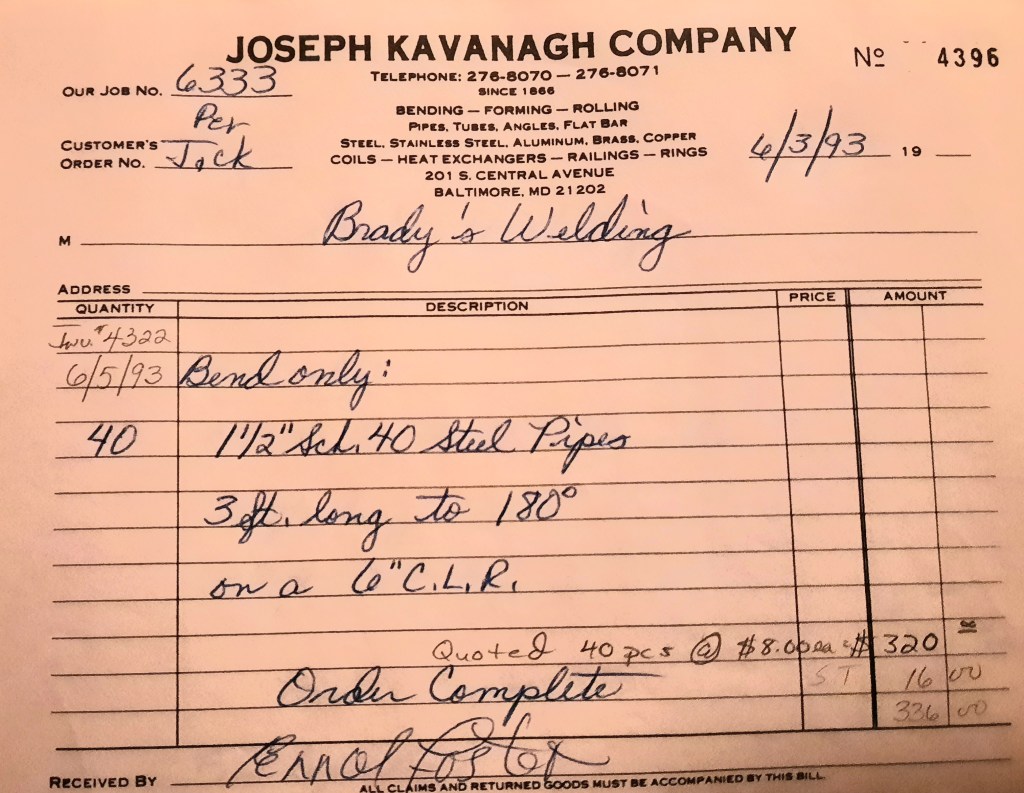 JOSEPH KAVANAGH COMPANY
Nº 4396
TELEPHONE: 276-8070 — 276-8071
SINCE 1866
OUR JOB NO. 6333
BENDING — FORMING — ROLLING
PIPES, TUBES, ANGLES, FLAT BAR
STEEL, STAINLESS STEEL, ALUMINUM, BRASS, COPPER
COILS — HEAT EXCHANGERS — RAILINGS — RINGS
201 S. CENTRAL AVENUE
BALTIMORE, MD 21202
Per
CUSTOMER'S ORDER NO. Jack
6/3/93 19
M Brady's Welding
ADDRESS
QUANTITY DESCRIPTION PRICE AMOUNT
Inv. # 4322
6/5/93 Bend only:
40 1 1/2" Sch. 40 Steel Pipes
3 ft. long to 180°
on a 6" C.L.R.
Quoted 40 pcs @ $8.00 ea = $ 320 00
Order Complete ST 16 00
336 00
RECEIVED BY Errol Foster
ALL CLAIMS AND RETURNED GOODS MUST BE ACCOMPANIED BY THIS BILL.